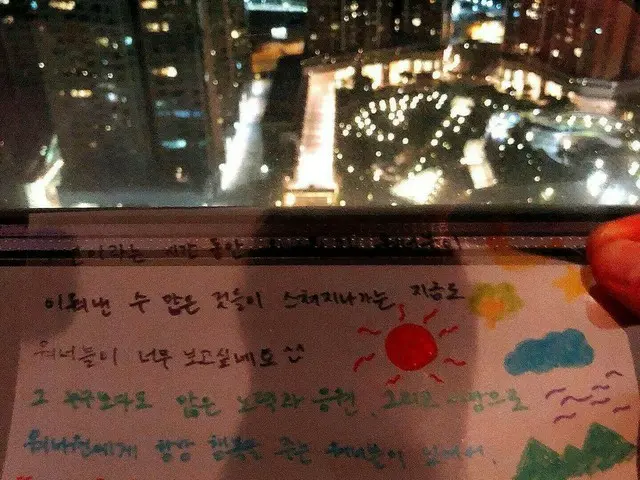 이라는 시간 동안
이뤄낸 수 많은 것들이 스쳐지나가는 지금도
워너블이 너무 보고싶네요 ^^
그 누구보다도 많은 노력과 응원, 그리고 사랑으로
워너원에게 항상 행복을 주는 워너블이 있어서,